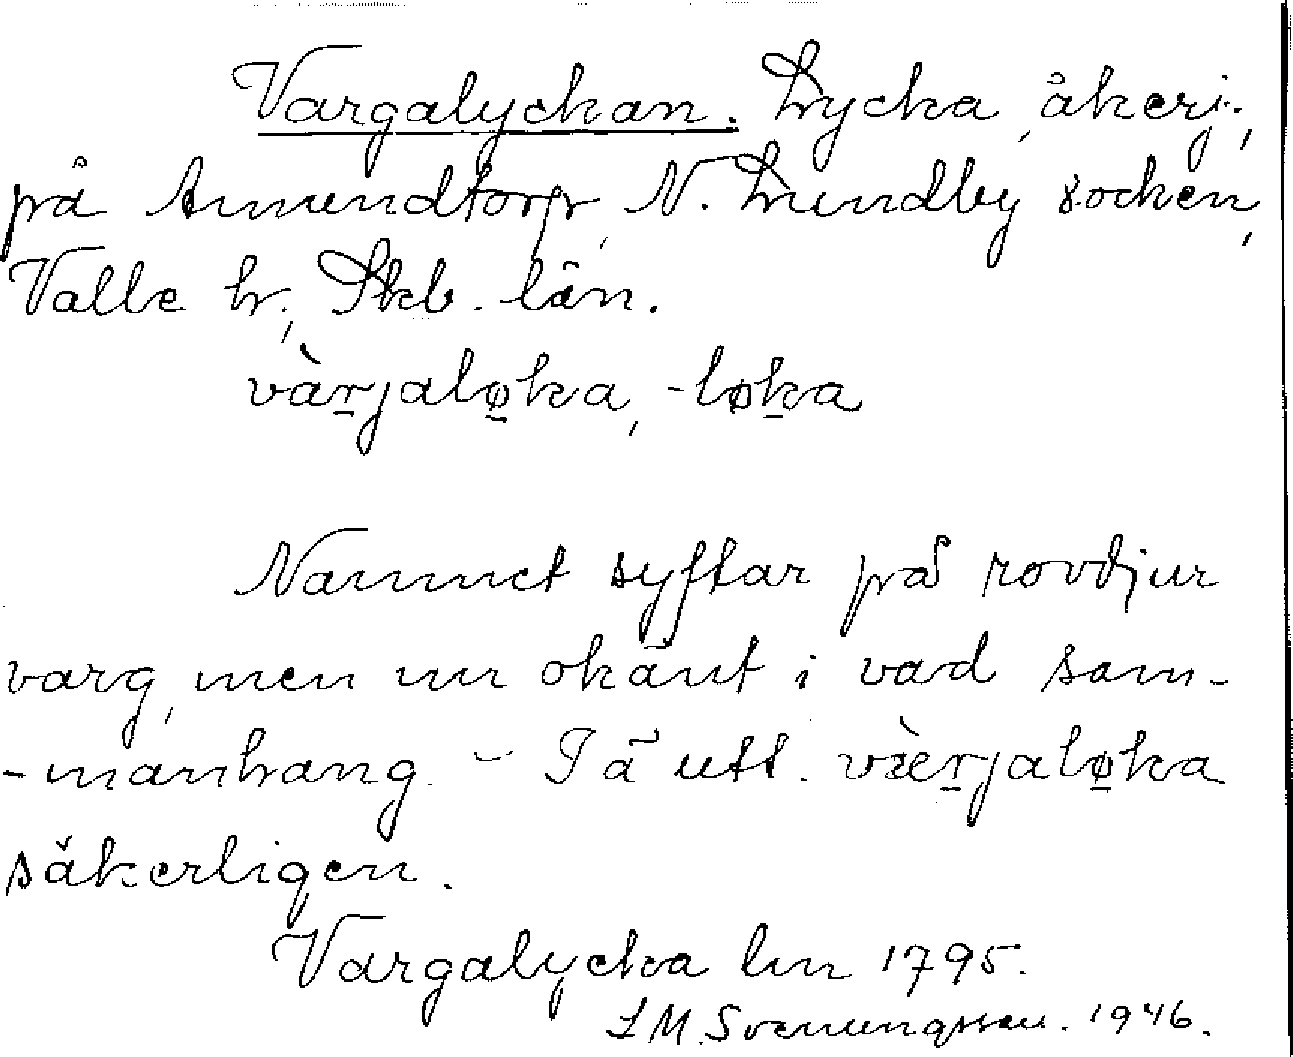 Vargalyckan. Lycka, åkerj.,
på Amundtorp, N. Lundby socken,
Valle h., Skb. län.
vàr̲jalø̲ka, -løk̲a
Namnet syftar på rovdjur
varg, men nu okänt i vad sam-
-manhang. - I ä utt. væ̀r̲jalø̲ka
säkerligen.
Vargalycka lm 1795.
S M Svenungsson. 1946.